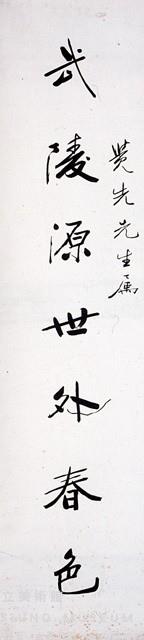 武陵源世外春色
先生属
立美術館
MUSEUM